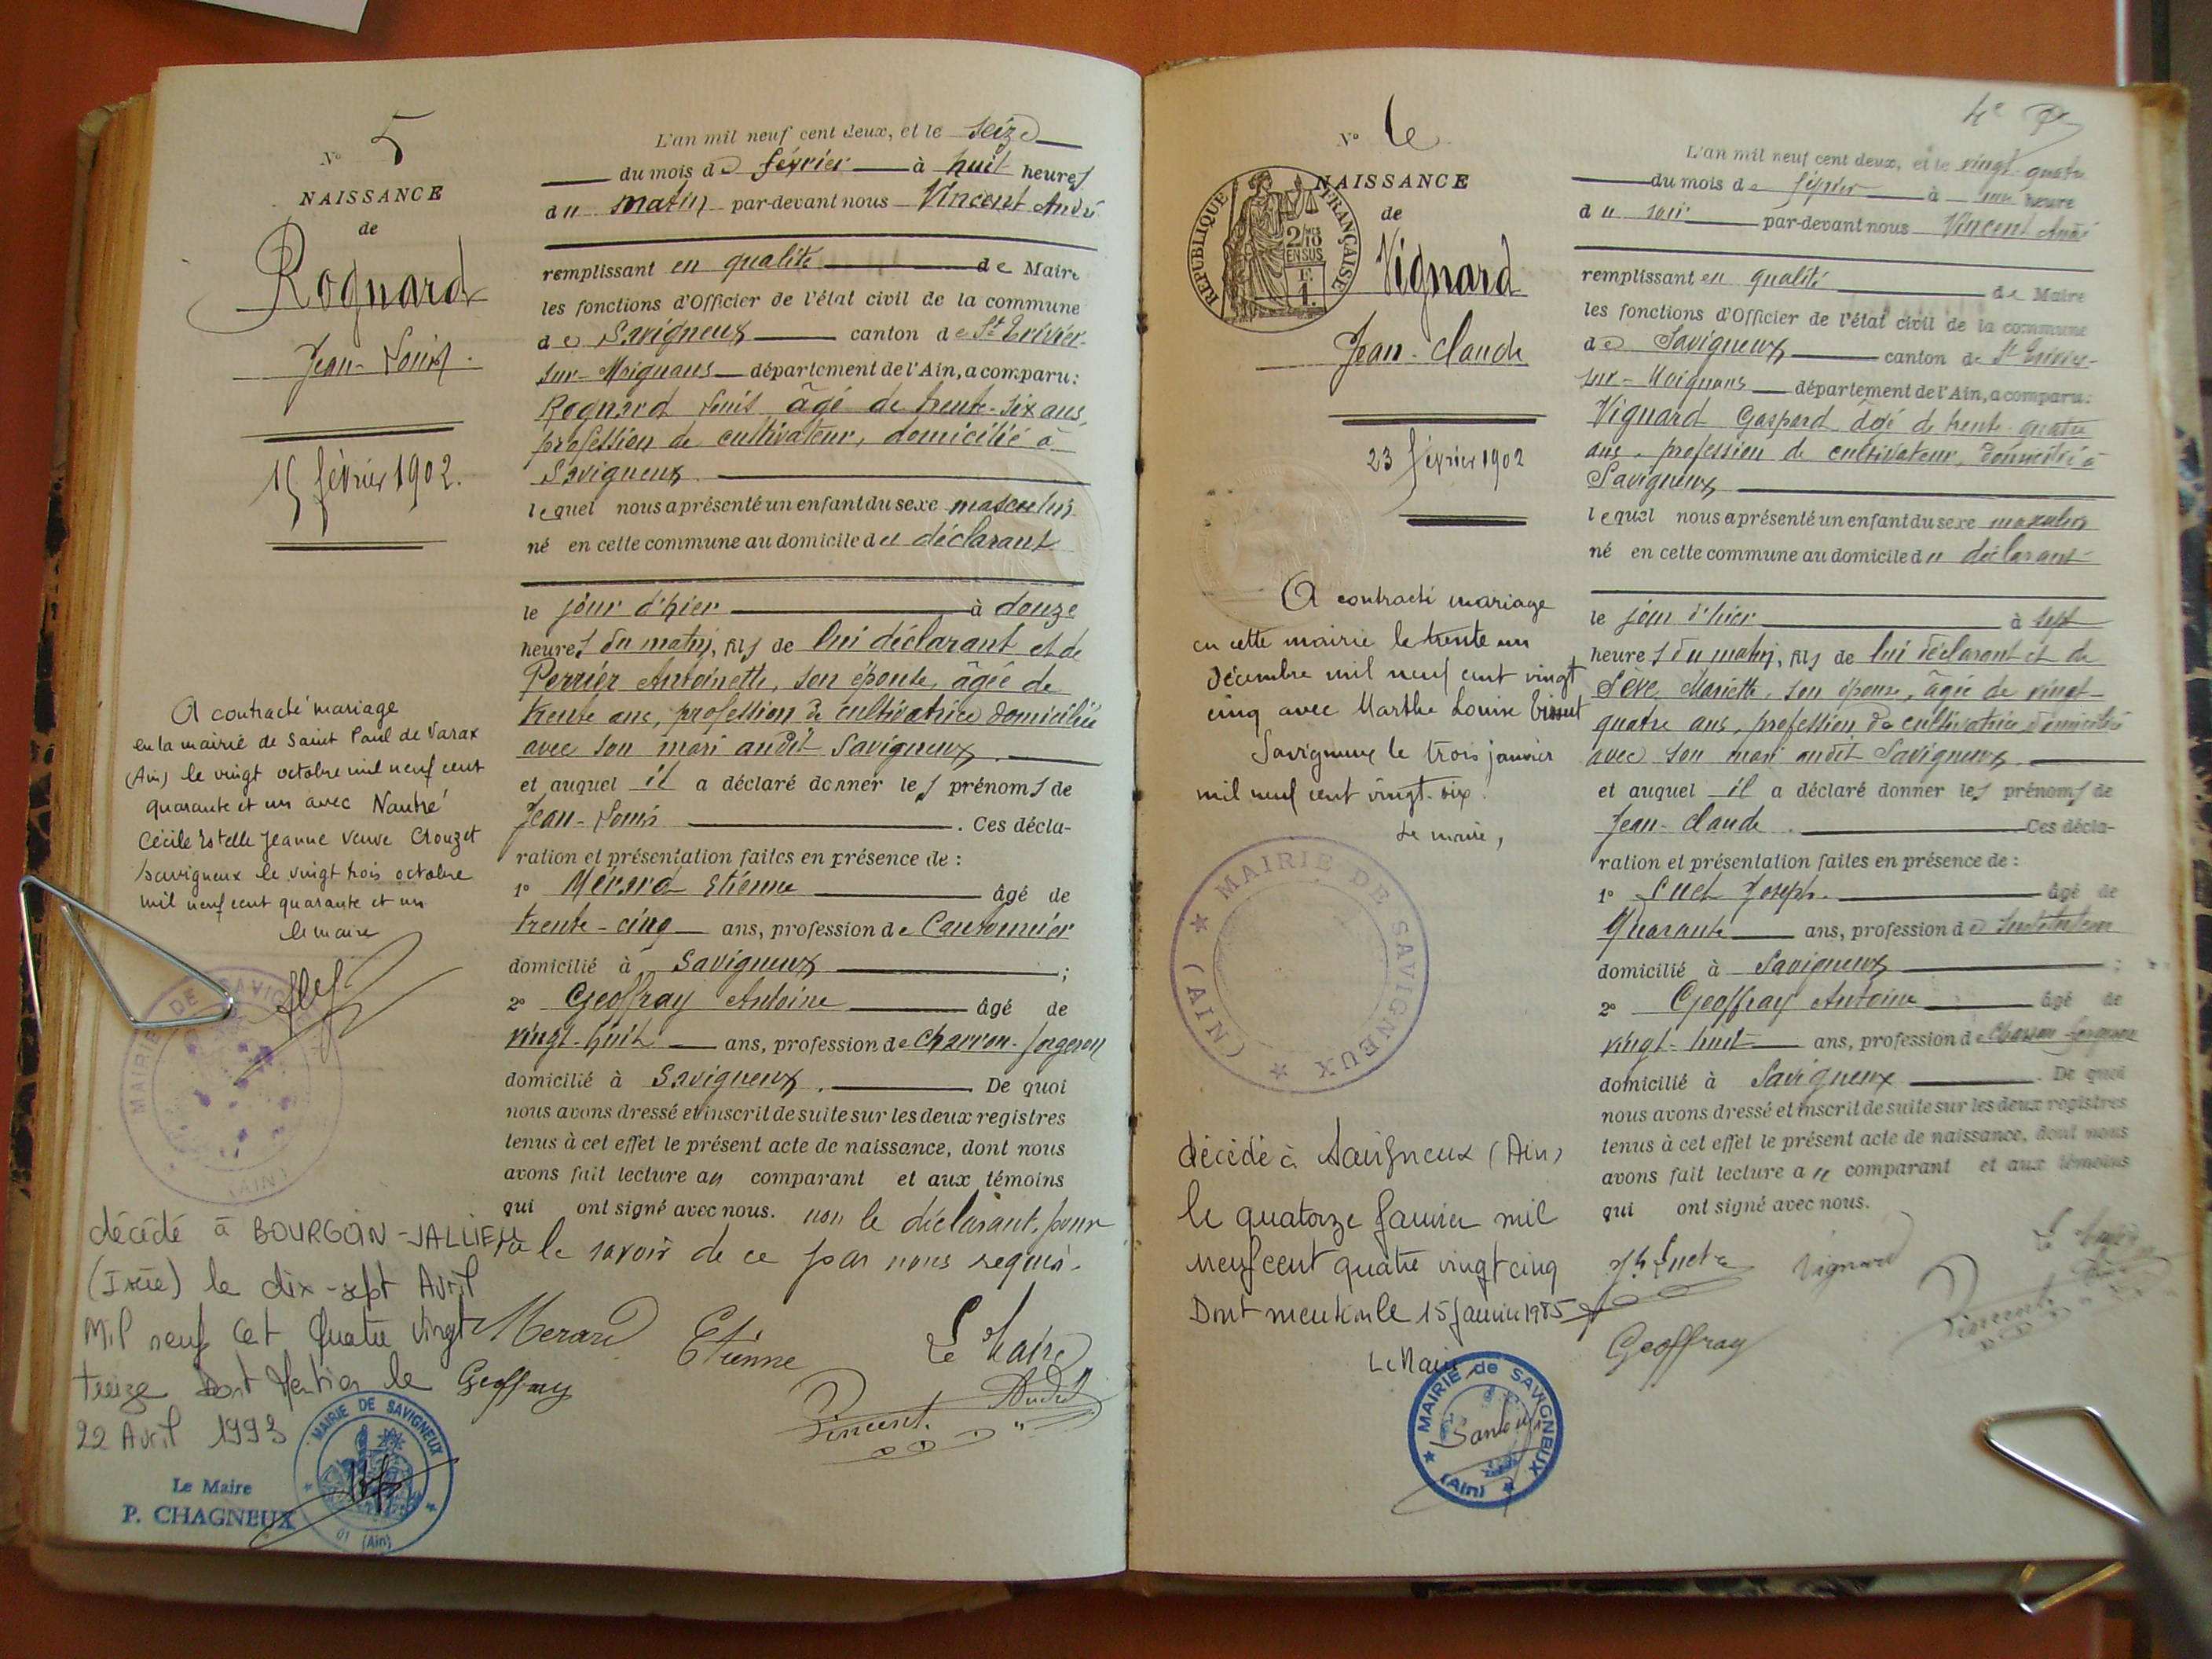 N° 5
NAISSANCE
de
Rognard
Jean-Louis.
15 février 1902.
A contracté mariage
en la mairie de Saint Paul de Varax
(Ain) le vingt octobre mil neuf cent
quarante et un avec Nautré
Cécile Estelle Jeanne veuve Crouzet
Savigneux le vingt trois octobre
mil neuf cent quarante et un
le maire
MAIRIE DE SAVIGNEUX
(AIN)
décédé à BOURGOIN-JALLIEU
(Isère) le dix-sept Avril
Mil neuf Cet Quatre Vingt
treize Dont Mention le
22 Avril 1993
Le Maire
P. CHAGNEUX
MAIRIE DE SAVIGNEUX
01 (Ain)
L'an mil neuf cent deux, et le seize
du mois de février à huit heures
du matin par-devant nous Vincent André
remplissant en qualité de Maire
les fonctions d'Officier de l'état civil de la commune
de Savigneux canton de St Trivier-
sur-Moignans département de l'Ain, a comparu:
Rognard Louis âgé de trente-six ans,
profession de cultivateur, domicilié à
Savigneux.
lequel nous a présenté un enfant du sexe masculin
né en cette commune au domicile du déclarant
le jour d'hier à douze
heures du matin, fils de lui déclarant et de
Perrier Antoinette, son épouse, âgée de
trente ans, profession de cultivatrice domiciliée
avec son mari audit Savigneux.
et auquel il a déclaré donner les prénoms de
Jean-Louis . Ces décla-
ration et présentation faites en présence de :
1° Mérard Etienne âgé de
trente-cinq ans, profession de Cantonnier
domicilié à Savigneux ;
2° Geoffray Antoine âgé de
vingt-huit ans, profession de Charron-forgeron
domicilié à Savigneux. De quoi
nous avons dressé et inscrit de suite sur les deux registres
tenus à cet effet le présent acte de naissance, dont nous
avons fait lecture au comparant et aux témoins
qui ont signé avec nous. non le déclarant, pour
ne le savoir de ce par nous requis.
Merard Etienne Le Maire
Geoffray Vincent André
N° 6
NAISSANCE
de
RÉPUBLIQUE FRANÇAISE
2/10 EN SUS
Vignard
Jean-Claude
23 février 1902
A contracté mariage
en cette mairie le trente un
décembre mil neuf cent vingt
cinq avec Marthe Louise
Savigneux le trois janvier
mil neuf cent vingt-six.
Le maire,
MAIRIE DE SAVIGNEUX
(AIN)
décédé à Savigneux (Ain)
le quatorze Janvier mil
neuf cent quatre vingt cinq
Dont mention le 15 Janvier 1985
Le Maire
MAIRIE de SAVIGNEUX
(Ain)
4e
L'an mil neuf cent deux, et le vingt-quatre
du mois de février à une heure
du soir par-devant nous Vincent André
remplissant en qualité de Maire
les fonctions d'Officier de l'état civil de la commune
de Savigneux canton de St Trivier-
sur-Moignans département de l'Ain, a comparu:
Vignard Gaspard âgé de trente-quatre
ans, profession de cultivateur, domicilié à
Savigneux
lequel nous a présenté un enfant du sexe masculin
né en cette commune au domicile du déclarant
le jour d'hier à sept
heures du matin, fils de lui déclarant et de
Sève Mariette, son épouse, âgée de vingt-
quatre ans, profession de cultivatrice domiciliée
avec son mari audit Savigneux.
et auquel il a déclaré donner les prénoms de
Jean-Claude. Ces décla-
ration et présentation faites en présence de :
1° Luct Joseph. âgé de
Quarante ans, profession de Instituteur
domicilié à Savigneux ;
2° Geoffray Antoine âgé de
vingt-huit ans, profession de Charron-forgeron
domicilié à Savigneux . De quoi
nous avons dressé et inscrit de suite sur les deux registres
tenus à cet effet le présent acte de naissance, dont nous
avons fait lecture au comparant et aux témoins
qui ont signé avec nous.
Vignard Le Maire
Geoffray Vincent